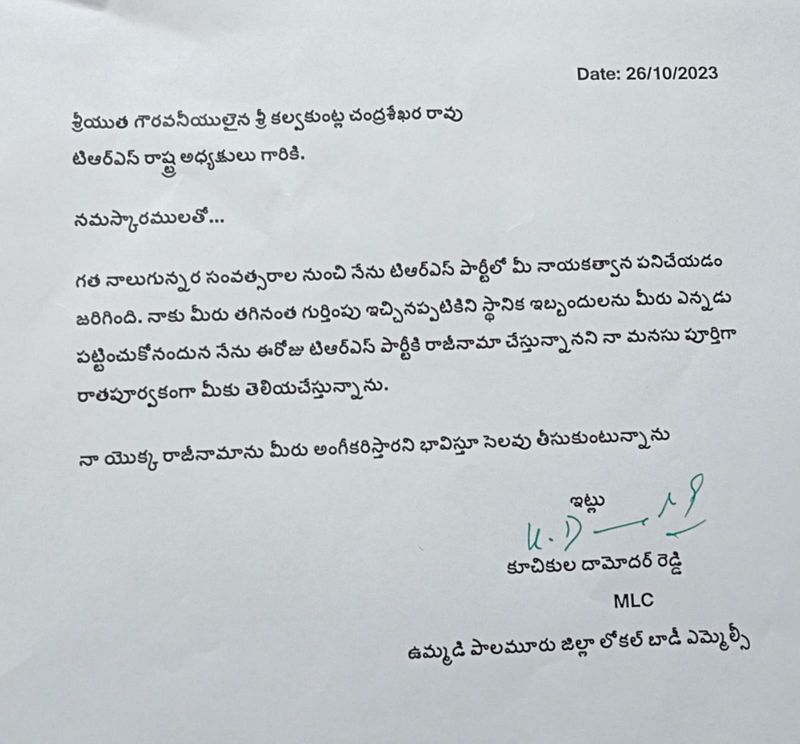 Date: 26/10/2023
శ్రీయుత గౌరవనీయులైన శ్రీ కల్వకుంట్ల చంద్రశేఖర రావు
టిఆర్ఎస్ రాష్ట్ర అధ్యక్షులు గారికి.
నమస్కారములతో...
గత నాలుగున్నర సంవత్సరాల నుంచి నేను టిఆర్ఎస్ పార్టీలో మీ నాయకత్వాన పనిచేయడం
జరిగింది. నాకు మీరు తగినంత గుర్తింపు ఇచ్చినప్పటికిని స్థానిక ఇబ్బందులను మీరు ఎన్నడు
పట్టించుకోనందున నేను ఈరోజు టిఆర్ఎస్ పార్టీకి రాజీనామా చేస్తున్నానని నా మనసు పూర్తిగా
రాతపూర్వకంగా మీకు తెలియచేస్తున్నాను.
నా యొక్క రాజీనామాను మీరు అంగీకరిస్తారని భావిస్తూ సెలవు తీసుకుంటున్నాను
ఇట్లు
K. D
కూచికుల దామోదర్ రెడ్డి
MLC
ఉమ్మడి పాలమూరు జిల్లా లోకల్ బాడీ ఎమ్మెల్సీ